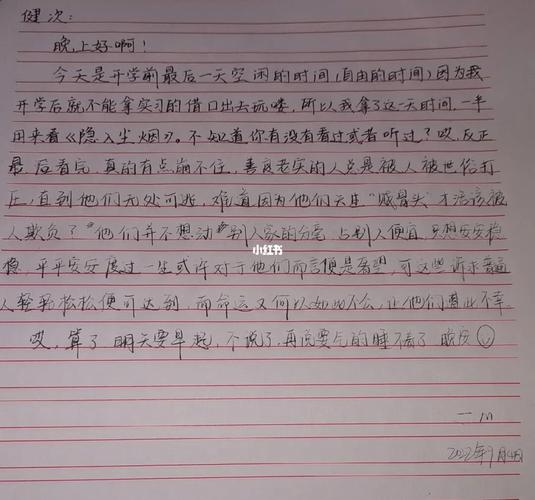 健次：
晚上好啊！
今天是开学前最后一天空闲的时间(自由的时间)因为我
开学后就不能拿实习的借口出去玩喽，所以我拿了这一天时间，一半
用来看《隐入尘烟》。不知道你有没有看过或者听过？哎，反正
最后看完，真的有点崩不住，善良老实的人总是被人被世俗打
压，直到他们无处可逃，难道因为他们天生“贱骨头”才活该被
人欺负了？他们并不想动别人家的分毫，占别人便宜，只想安安稳
稳，平平安安度过一生或许对于他们而言便是奢望，可这些诉求普通
人轻轻松松便可达到，而命运又何以如此不公，让他们曹此不幸
哎，算了明天要早起，不说了，再说要气的睡不着了晚安
小红书
二川
2022年9月4日